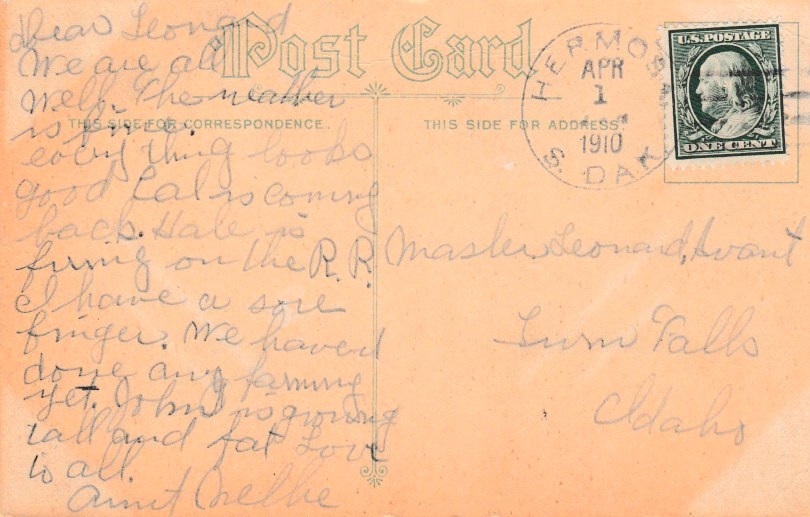 Post Card
THIS SIDE FOR CORRESPONDENCE.
THIS SIDE FOR ADDRESS.
HERMOSA
APR
1
1910
S. DAK
U.S. POSTAGE
ONE CENT
Dear Leonard
We are all
well. The weather
is fine.
everything looks
good Cal is coming
back. Hale is
firing on the R.R.
I have a sore
finger. We havent
done any farming
yet. John is growing
tall and fat Love
to all.
Aunt Nellie
Master Leonard
Twin Falls
Idaho